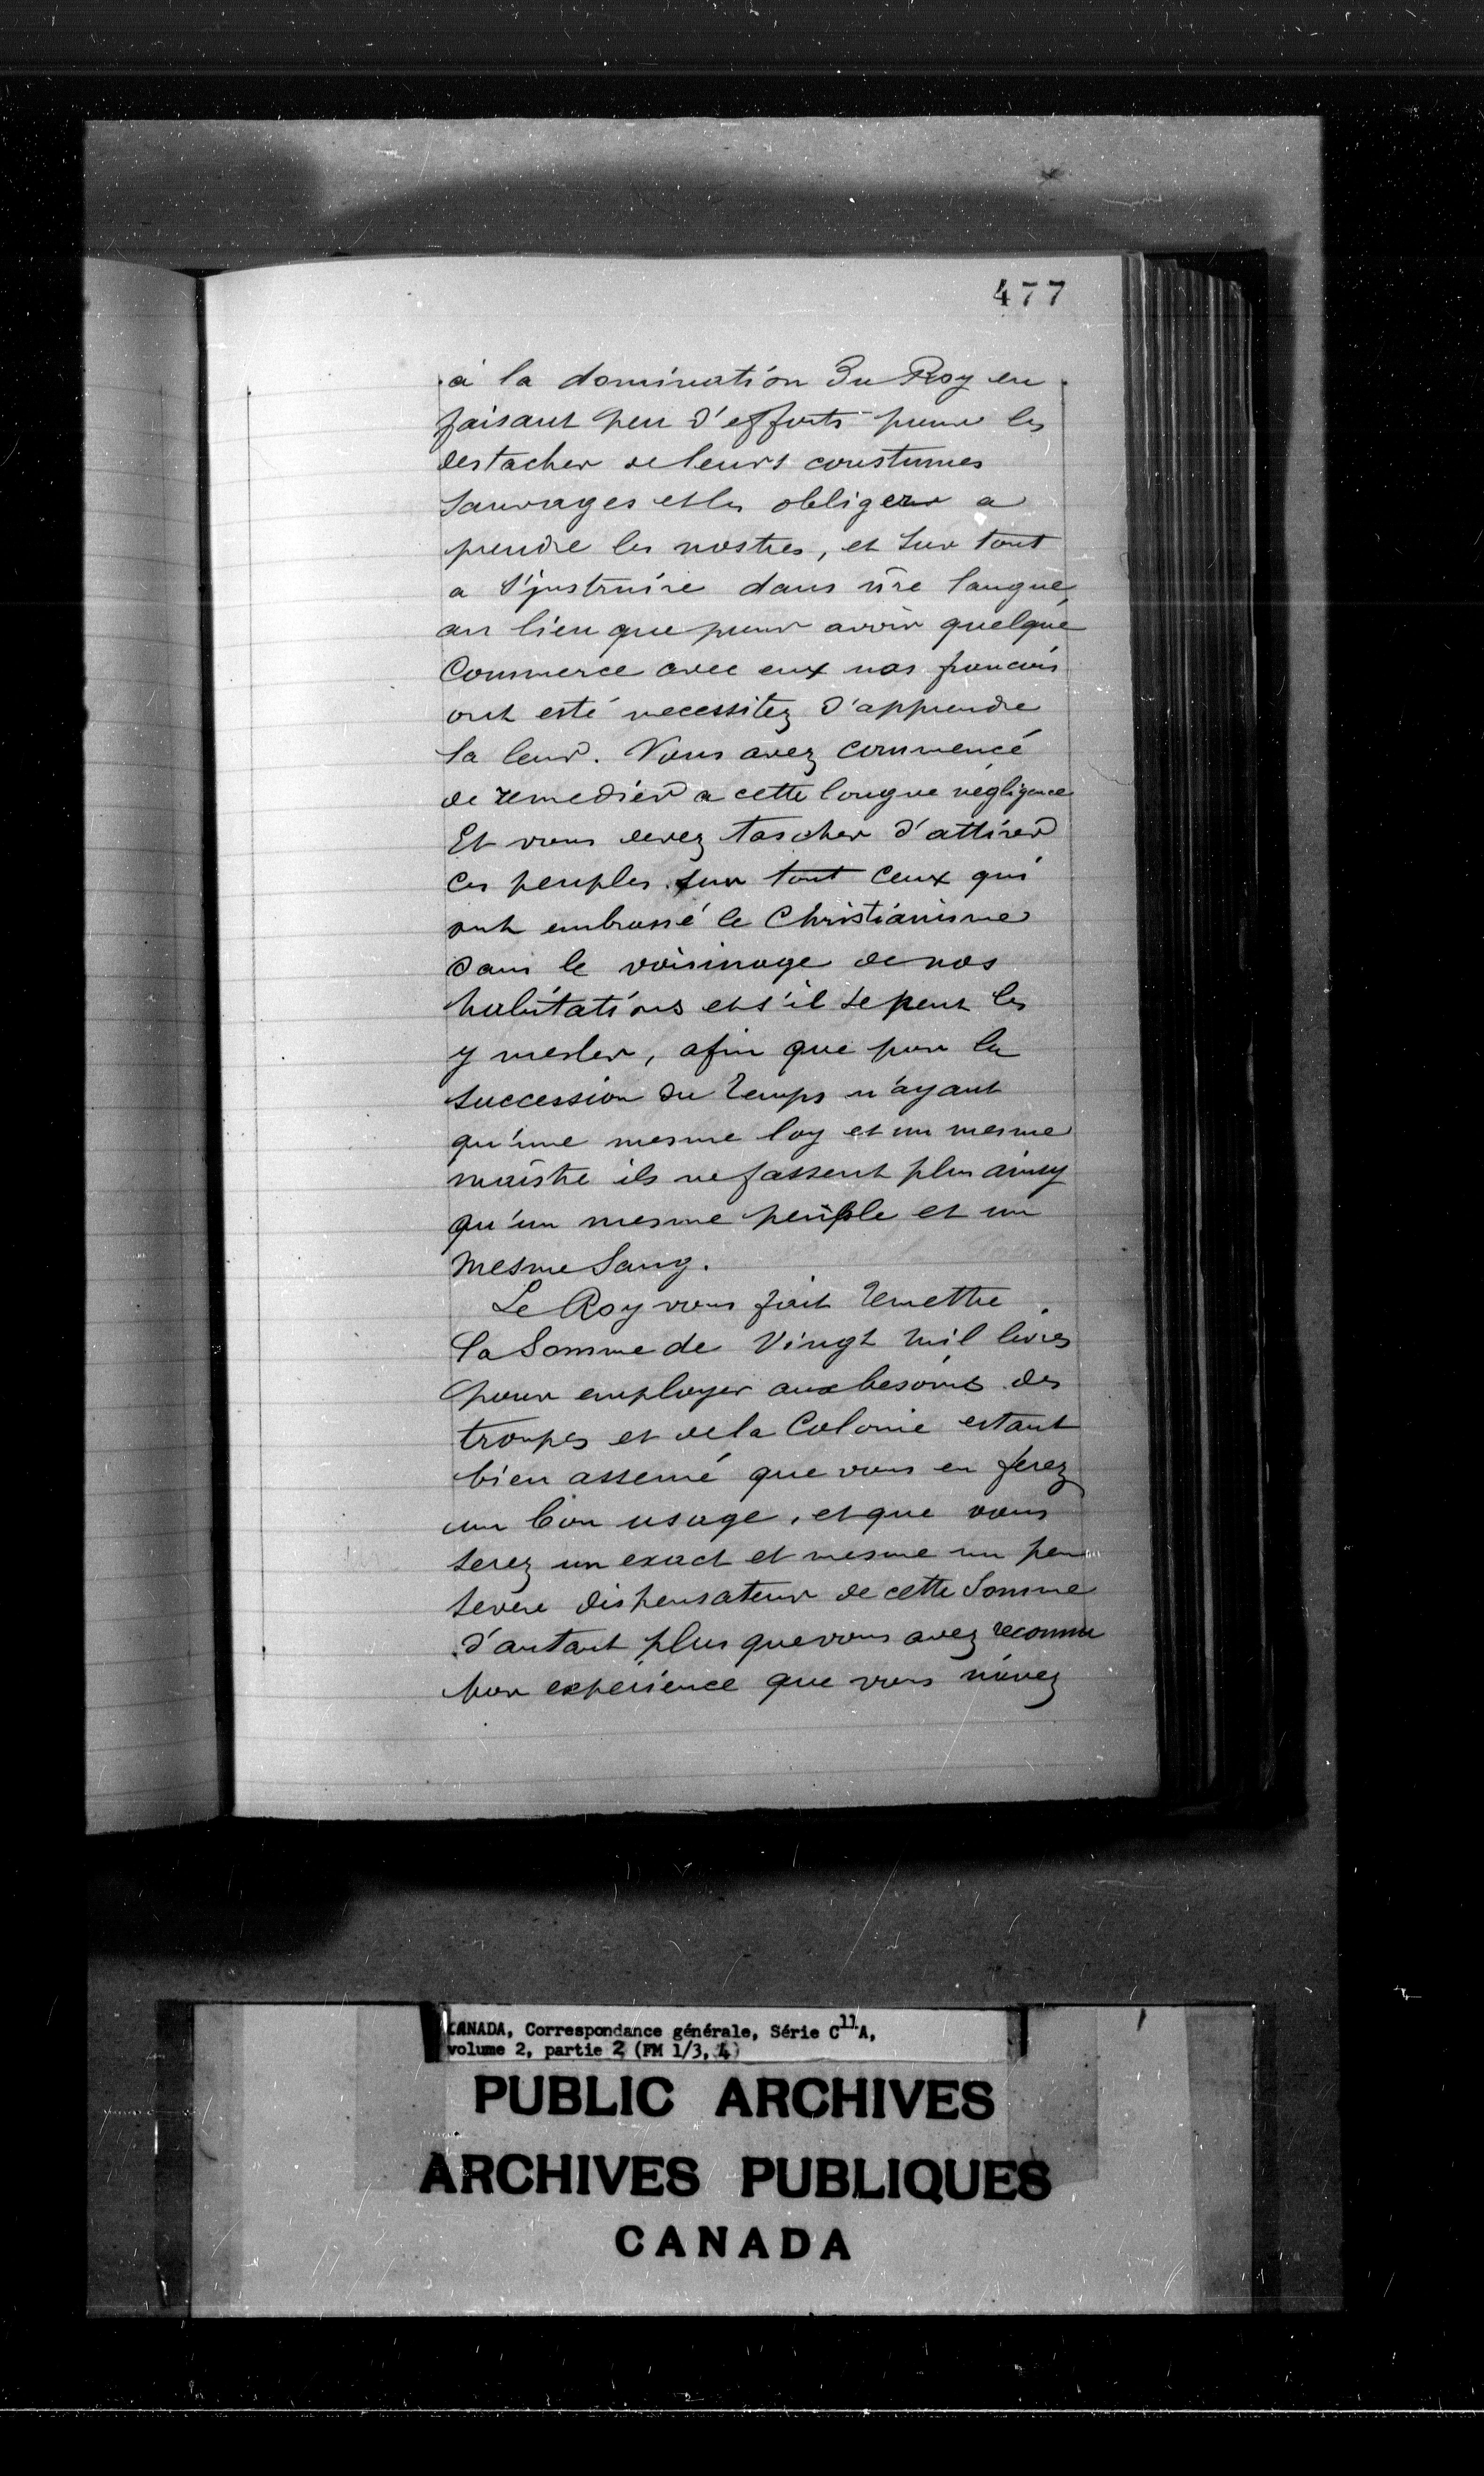 477
à la domination Du Roy en
faisant peu d'efforts pour les
destacher de leurs coustumes
Sauvages et les obliger a
prendre les nostres, et sur tout
a s'jnstruire dans nre langue,
au lieu que pour avoir quelque
Commerce avec eux nos francois
ont esté necessitez d'apprendre
la leur. Vous avez commencé
de remedier a cette longue négligence
Et vous devez tascher d'attirer
Ces peuples sur tout ceux qui
ont embrassé le Christianisme
Dans le voisinage de nos
habitations et s'il se peut les
y mesler, afin que par la
succession du temps n'ayant
qu'une mesme loy et un mesme
maistre ils ne fassent plus ainsy
qu'un mesme peuple et un
mesme Sang.
Le Roy vous fait remettre
la Somme de Vingt mil livres
pour employer aux besoins des
troupes et de la Colonie estant
bien asseuré que vous en ferez
un bon usage, et que vous
serez un exact et mesme un peu
severe dispensateur de cette Somme
d'autant plus que vous avez reconnu
par experience que vous n'avez
CANADA, Correspondance générale, Série C11A,
volume 2, partie 2 (FM 1/3, 4)
PUBLIC ARCHIVES
ARCHIVES PUBLIQUES
CANADA